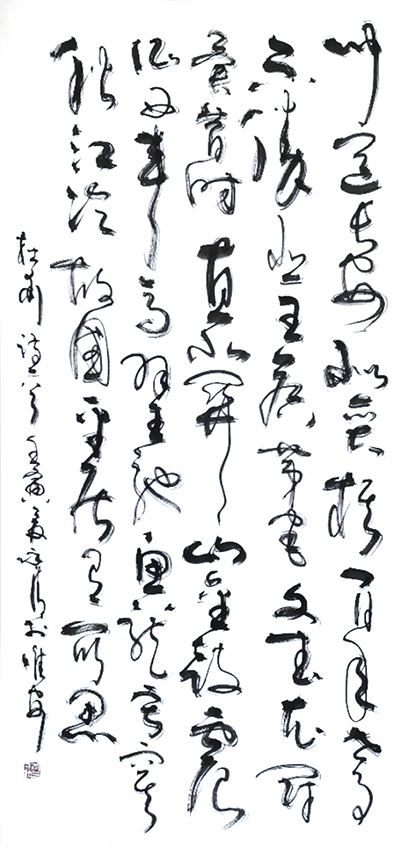 聞道長安似弈棋百年世事
不勝悲王侯第宅文武衣冠
異昔時直北關山金鼓震
征西車馬羽書馳魚龍寂寞
秋江冷故國平居有所思
杜甫詩一首壬寅夏於淮安